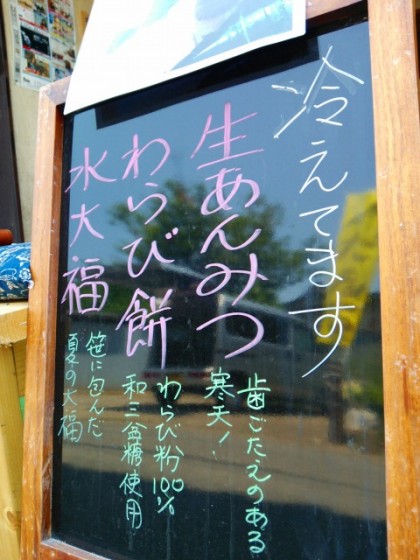 冷えてます
生あんみつ
歯ごたえのある
寒天！
わらび餅
わらび粉100%
和三盆糖使用
水大福
笹に包んだ
夏の大福